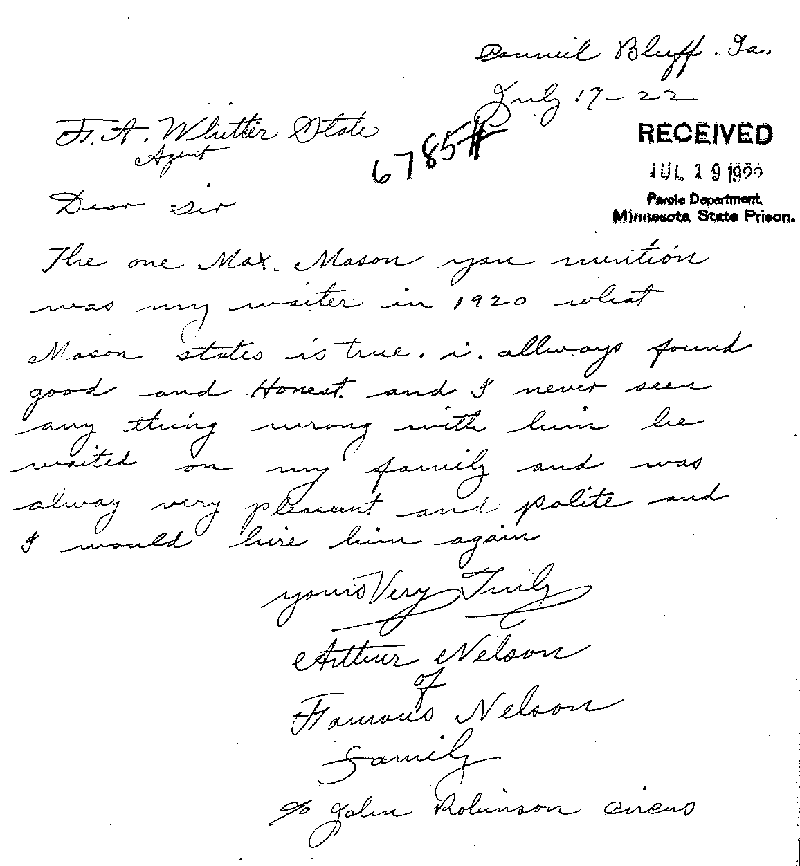 Council Bluff. Ia.
July 17-22
F. A. Whitter State
Agent
6785#
RECEIVED
JUL 19 1922
Parole Department,
Minnesota State Prison.
Dear Sir
The one Max. Mason you mention
was my waiter in 1920 what
Mason states is true. i. allways found
good and Honest. and I never seen
any thing wrong with him he
waited on my family and was
alway very pleasent and polite and
I would hire him again
yours Very Truly
Arthur Nelson
of
Famous Nelson
Family
c/o John Robinson circus